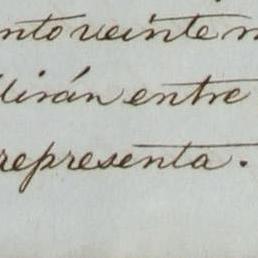 nto veinte m
dirán entre
representa.